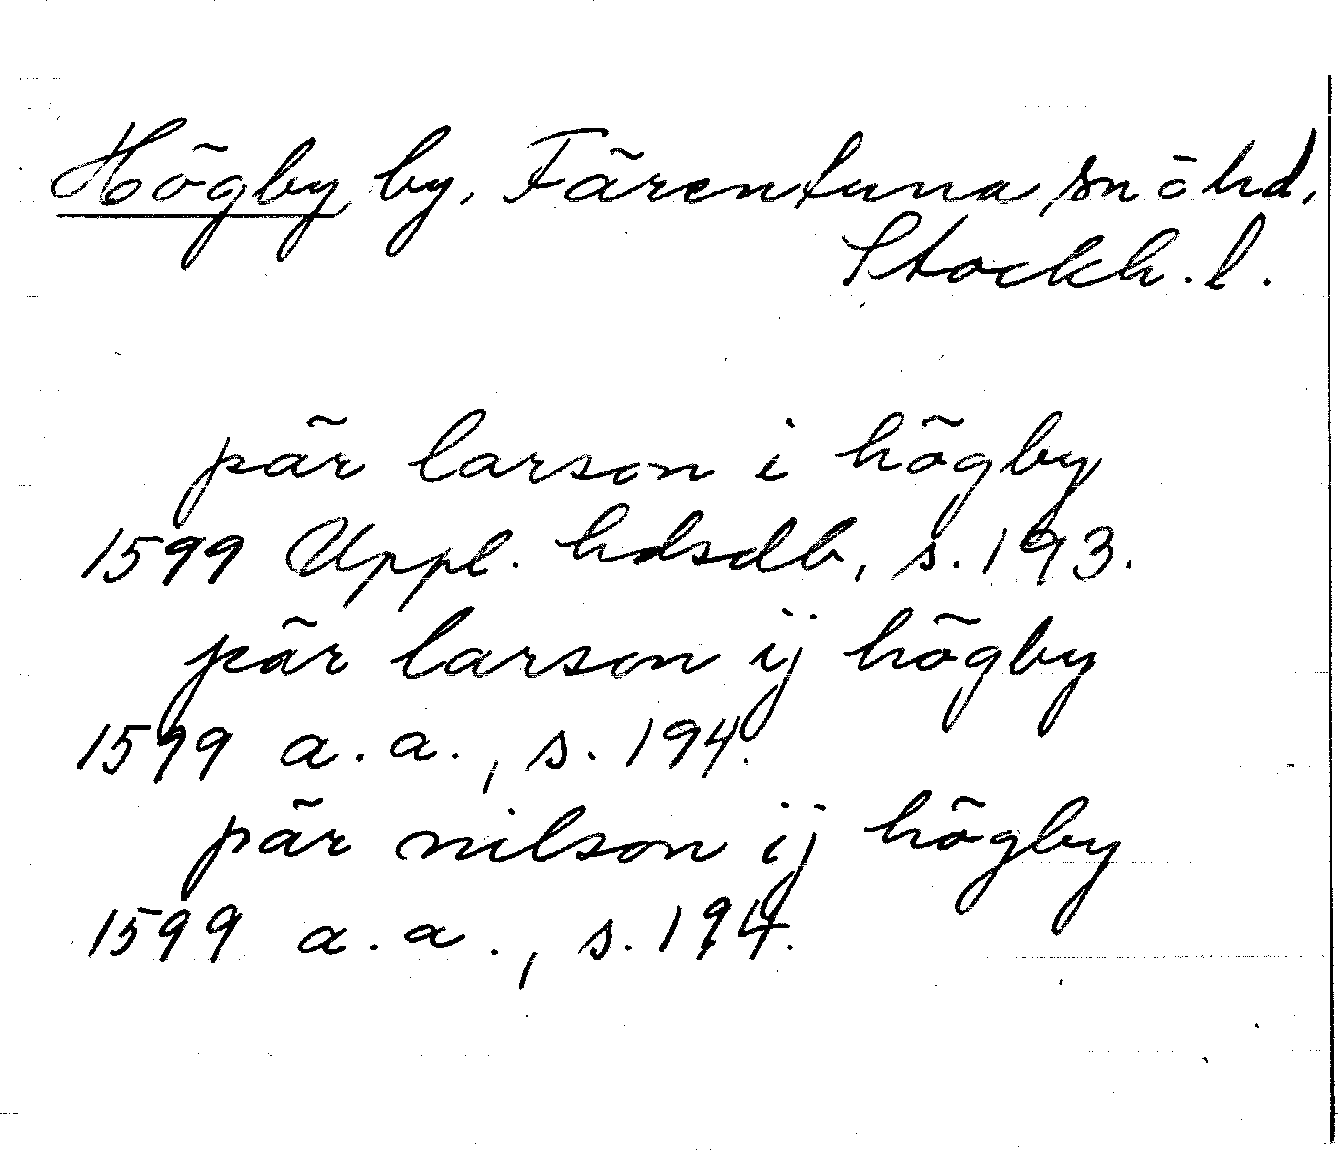 Högby by, Färentuna sn ö hd,
Stockh. l.
pär larson i högby
1599 Uppl. hdsdb, s. 193.
pär larson ij högby
1599 a.a., s. 194.
pär nilson ij högby
1599 a.a., s. 194.